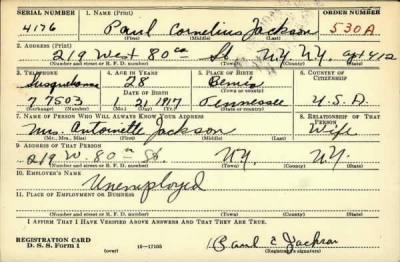 SERIAL NUMBER 1. NAME (Print) ORDER NUMBER
4176 Paul Cornelius Jackson 530A
(First) (Middle) (Last)
2. ADDRESS (Print)
219 West 80 St N.Y. N.Y. apt 412
(Number and street or R. F. D. number) (Town) (County) (State)
3. TELEPHONE 4. AGE IN YEARS 5. PLACE OF BIRTH 6. COUNTRY OF CITIZENSHIP
Susquehanna 28 Bemis
DATE OF BIRTH (Town or county)
7 7503 1 21 1917 Tennessee U.S.A.
(Exchange) (Number) (Mo.) (Day) (Yr.) (State or country)
7. NAME OF PERSON WHO WILL ALWAYS KNOW YOUR ADDRESS 8. RELATIONSHIP OF THAT PERSON
Mrs. Antoinette Jackson Wife
(Mr., Mrs., Miss) (First) (Middle) (Last)
9. ADDRESS OF THAT PERSON
219 W. 80 St. N.Y. N.Y.
(Number and street or R. F. D. number) (Town) (County) (State)
10. EMPLOYER'S NAME
Unemployed
11. PLACE OF EMPLOYMENT OR BUSINESS
(Number and street or R. F. D. number) (Town) (County) (State)
I AFFIRM THAT I HAVE VERIFIED ABOVE ANSWERS AND THAT THEY ARE TRUE.
REGISTRATION CARD
D. S. S. Form 1 (over) 16-17105 Paul C Jackson
(Registrant's signature)